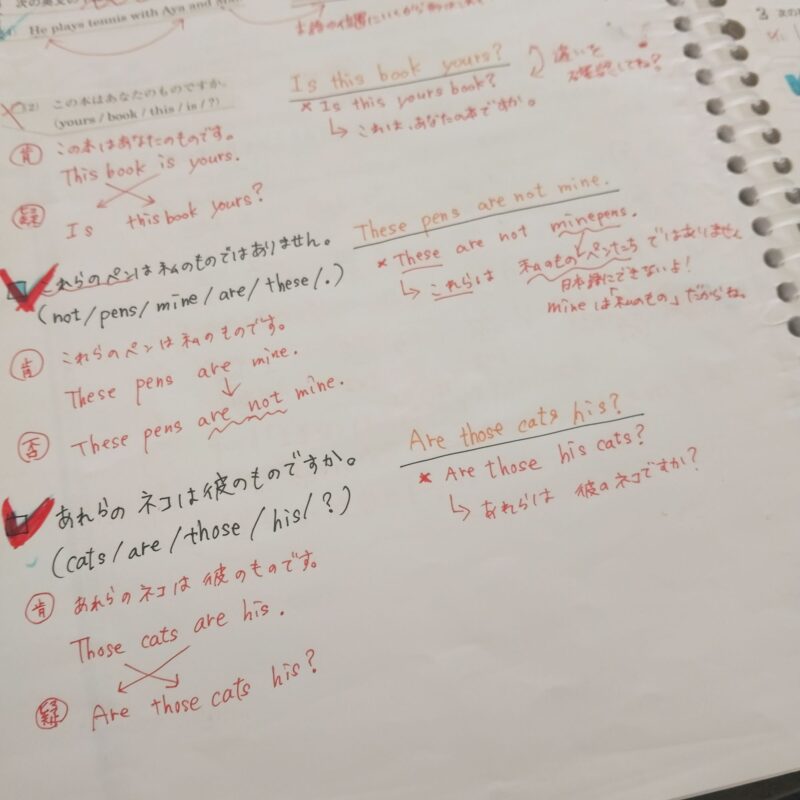 次の英文の
He plays tennis with Aya and
(2) この本はあなたのものですか。
(yours / book / this / is / ?)
肯 この本はあなたのものです。
This book is yours.
疑 Is this book yours?
Is this book yours?
× Is this yours book?
↳ これは、あなたの本ですか。
違いを
確認してね?
これらのペンは私のものではありません。
(not / pens / mine / are / these / .)
肯 これらのペンは私のものです。
These pens are mine.
否 These pens are not mine.
These pens are not mine.
× These are not mine pens.
↳ これらは 私のものペンたち ではありません
日本語にできないよ!
mine は「私のもの」だからね。
あれらのネコは彼のものですか。
(cats / are / those / his / ?)
肯 あれらのネコは彼のものです。
Those cats are his.
疑 Are those cats his?
Are those cats his?
× Are those his cats?
↳ あれらは 彼のネコですか?
3 次の